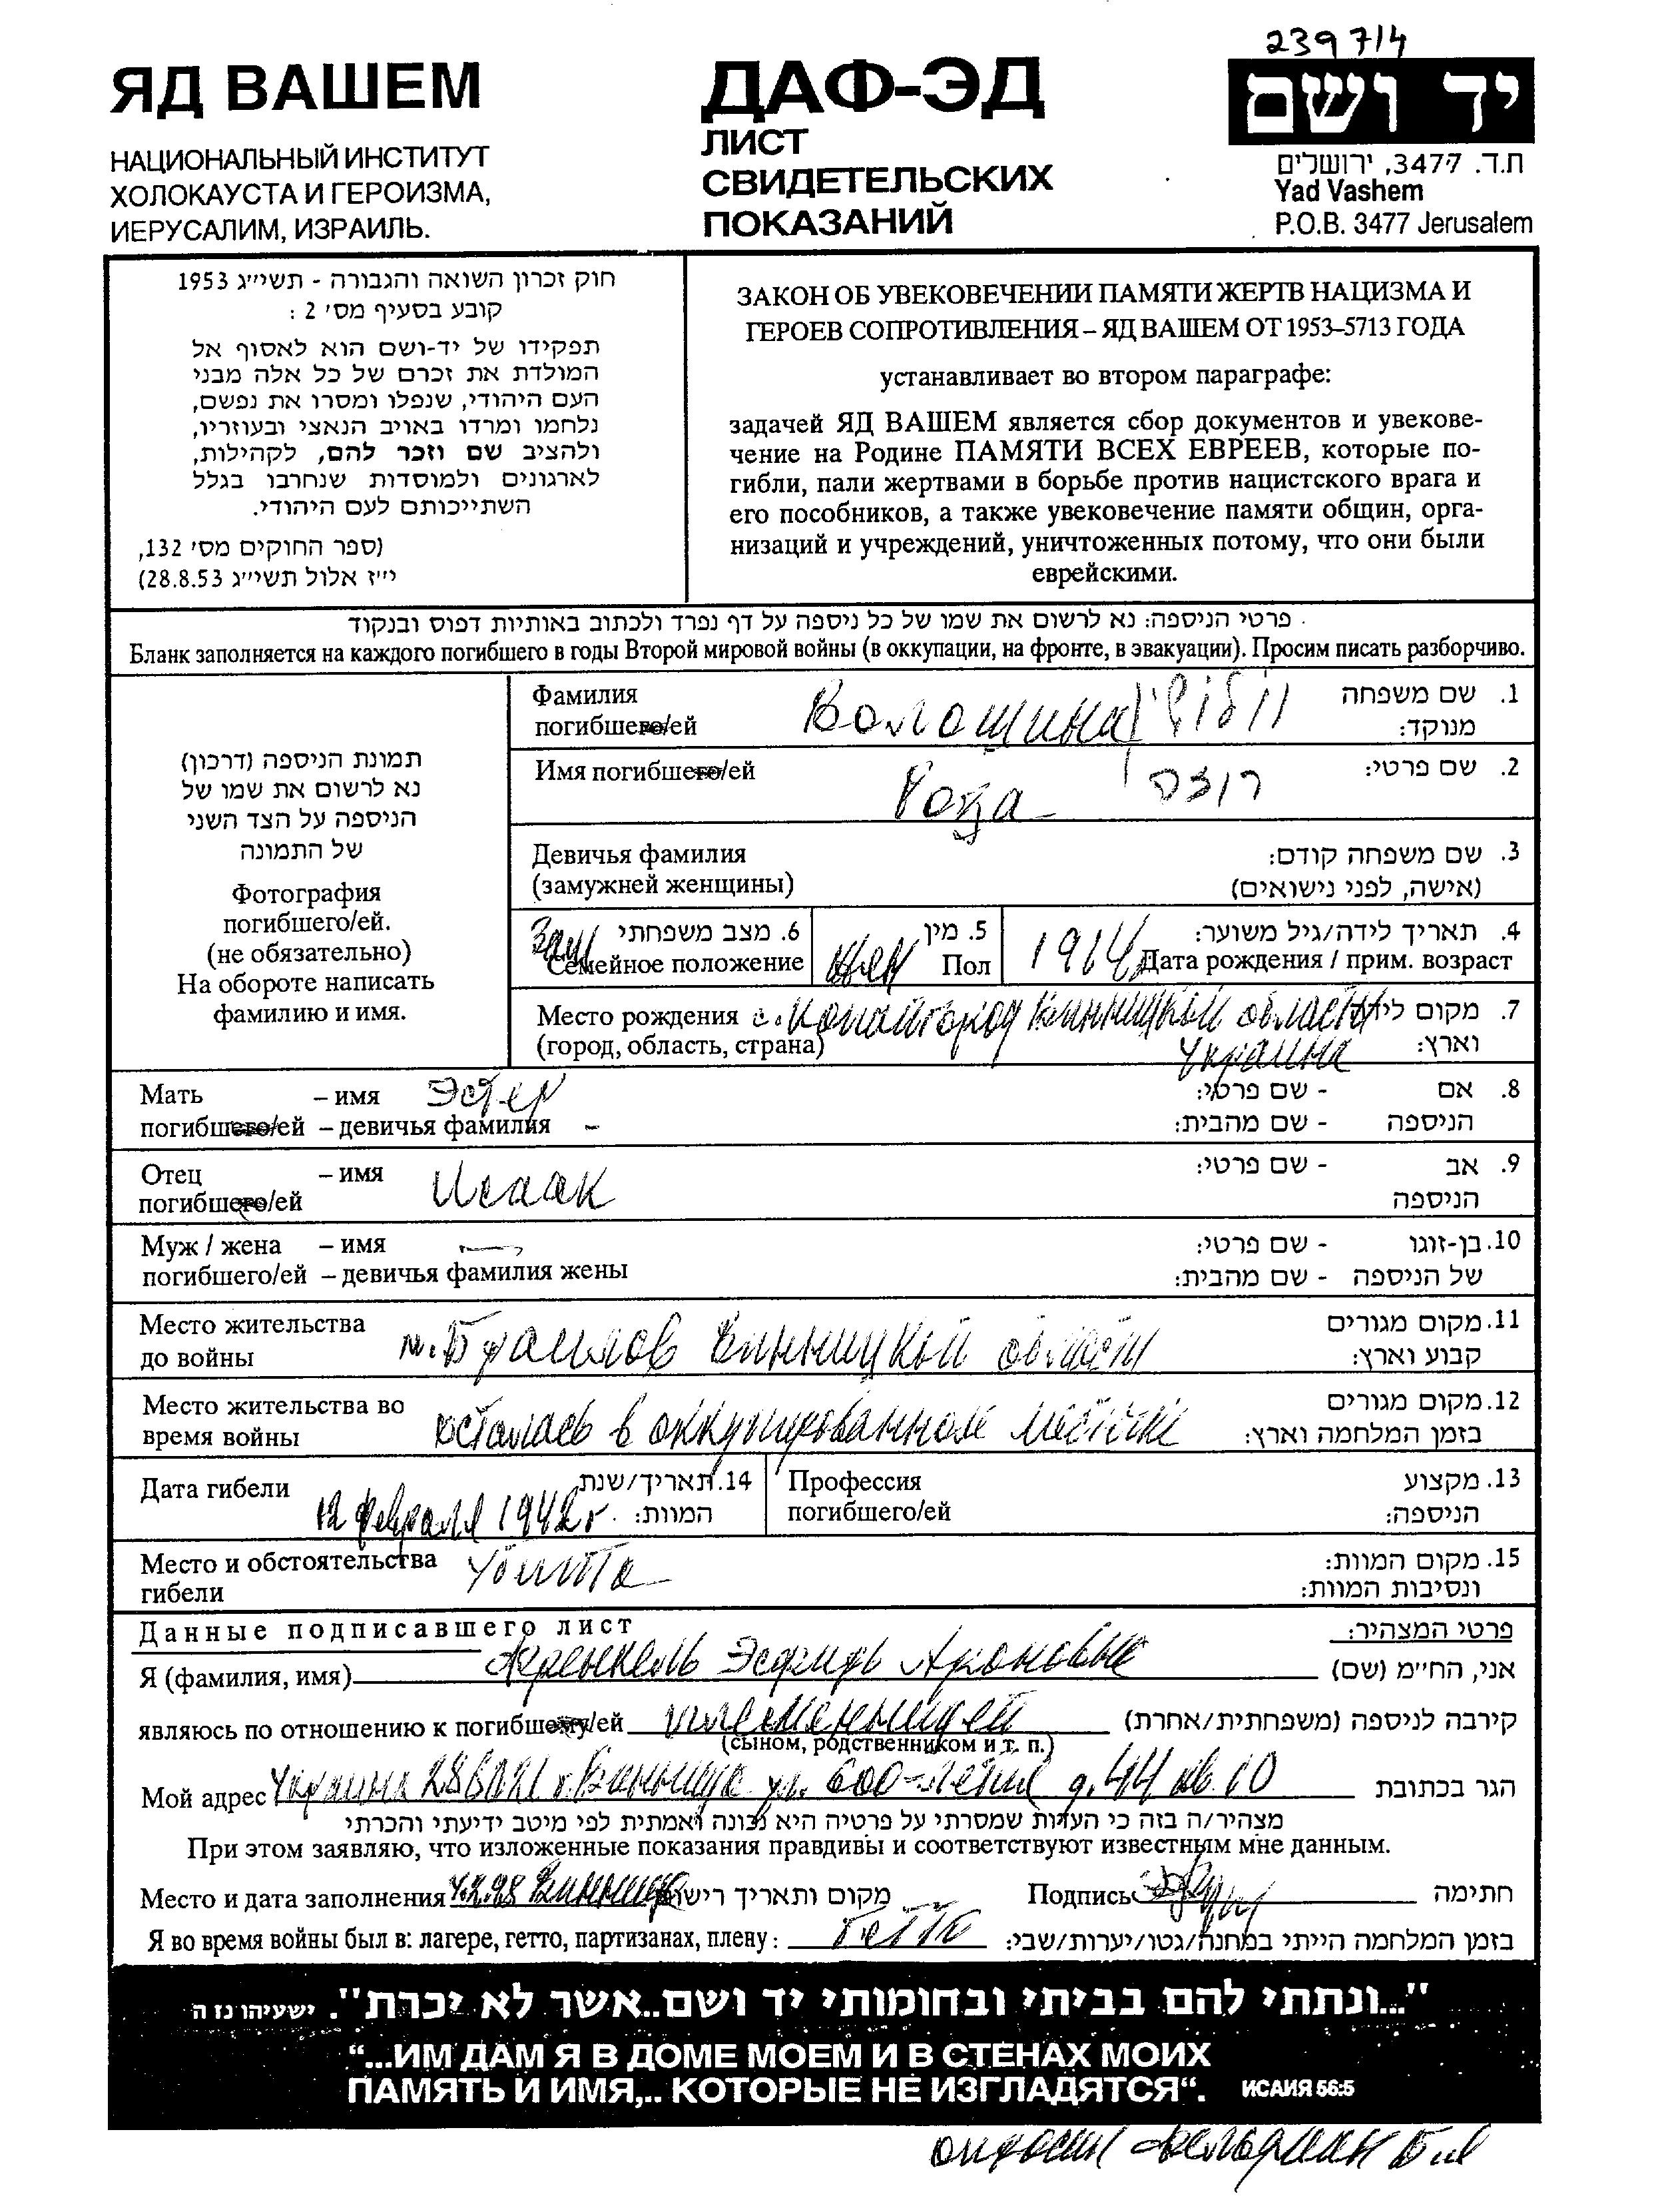 239714
ЯД ВАШЕМ
НАЦИОНАЛЬНЫЙ ИНСТИТУТ
ХОЛОКАУСТА И ГЕРОИЗМА,
ИЕРУСАЛИМ, ИЗРАИЛЬ.
ДАФ-ЭД
ЛИСТ
СВИДЕТЕЛЬСКИХ
ПОКАЗАНИЙ
יד ושם
ת.ד. 3477, ירושלים
Yad Vashem
P.O.B. 3477 Jerusalem
חוק זכרון השואה והגבורה - תשי״ג 1953
קובע בסעיף מס׳ 2 :
תפקידו של יד-ושם הוא לאסוף אל
המולדת את זכרם של כל אלה מבני
העם היהודי, שנפלו ומסרו את נפשם,
נלחמו ומרדו באויב הנאצי ובעוזריו,
ולהציב שם וזכר להם, לקהילות,
לארגונים ולמוסדות שנחרבו בגלל
השתייכותם לעם היהודי.
(ספר החוקים מס׳ 132,
י״ז אלול תשי״ג 28.8.53)
ЗАКОН ОБ УВЕКОВЕЧЕНИИ ПАМЯТИ ЖЕРТВ НАЦИЗМА И
ГЕРОЕВ СОПРОТИВЛЕНИЯ – ЯД ВАШЕМ ОТ 1953–5713 ГОДА
устанавливает во втором параграфе:
задачей ЯД ВАШЕМ является сбор документов и увекове-
чение на Родине ПАМЯТИ ВСЕХ ЕВРЕЕВ, которые по-
гибли, пали жертвами в борьбе против нацистского врага и
его пособников, а также увековечение памяти общин, орга-
низаций и учреждений, уничтоженных потому, что они были
еврейскими.
פרטי הניספה: נא לרשום את שמו של כל ניספה על דף נפרד ולכתוב באותיות דפוס ובנקוד
Бланк заполняется на каждого погибшего в годы Второй мировой войны (в оккупации, на фронте, в эвакуации). Просим писать разборчиво.
תמונת הניספה (דרכון)
נא לרשום את שמו של
הניספה על הצד השני
של התמונה
Фотография
погибшего/ей.
(не обязательно)
На обороте написать
фамилию и имя.
Фамилия Волошина 1. שם משפחה
погибшего/ей מנוקד:
Имя погибшего/ей Роза רוזה 2. שם פרטי:
Девичья фамилия 3. שם משפחה קודם:
(замужней женщины) (אישה, לפני נישואים)
Зам 6. מצב משפחתי 5. מין 1914 4. תאריך לידה/גיל משוער:
Семейное положение жен Пол Дата рождения / прим. возраст
Место рождения с. Копайгород Винницкой области 7. מקום לידה
(город, область, страна) Украина וארץ:
Мать – имя Эстер - שם פרטי: 8. אם
погибшего/ей – девичья фамилия – - שם מהבית: הניספה
Отец – имя Исаак - שם פרטי: 9. אב
погибшего/ей הניספה
Муж / жена – имя – - שם פרטי: 10. בן-זוגו
погибшего/ей – девичья фамилия жены - שם מהבית: של הניספה
Место жительства м. Браилов Винницкой области 11. מקום מגורים
до войны קבוע וארץ:
Место жительства во осталась в оккупированном местечке 12. מקום מגורים
время войны בזמן המלחמה וארץ:
Дата гибели 14. תאריך/שנת Профессия 13. מקצוע
12 февраля 1942 г. המוות: погибшего/ей הניספה:
Место и обстоятельства Убита 15. מקום המוות:
гибели ונסיבות המוות:
Данные подписавшего лист פרטי המצהיר:
Я (фамилия, имя) Френкель Эсфирь Ароновна אני, הח״מ (שם)
являюсь по отношению к погибшему/ей племянницей קירבה לניספה (משפחתית/אחרת)
(сыном, родственником и т. п.)
Мой адрес Украина 286021 г. Винница ул. 600-летия д. 44 кв. 10 הגר בכתובת
מצהיר/ה בזה כי העדות שמסרתי על פרטיה היא נכונה ואמתית לפי מיטב ידיעתי והכרתי
При этом заявляю, что изложенные показания правдивы и соответствуют известным мне данным.
Место и дата заполнения 4.2.98 Винница מקום ותאריך רישום Подпись חתימה
Я во время войны был в: лагере, гетто, партизанах, плену: Гетто בזמן המלחמה הייתי במחנה/גטו/יערות/שבי:
"...ונתתי להם בביתי ובחומותי יד ושם..אשר לא יכרת". ישעיהו נז ה
“...ИМ ДАМ Я В ДОМЕ МОЕМ И В СТЕНАХ МОИХ
ПАМЯТЬ И ИМЯ,.. КОТОРЫЕ НЕ ИЗГЛАДЯТСЯ“. ИСАИЯ 56:5